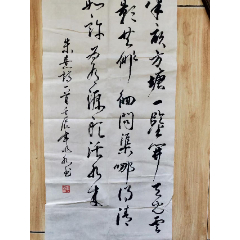 半畝方塘一鑒開天光雲
影共徘徊问渠哪得清
如許為有源头活水来
朱熹诗一首